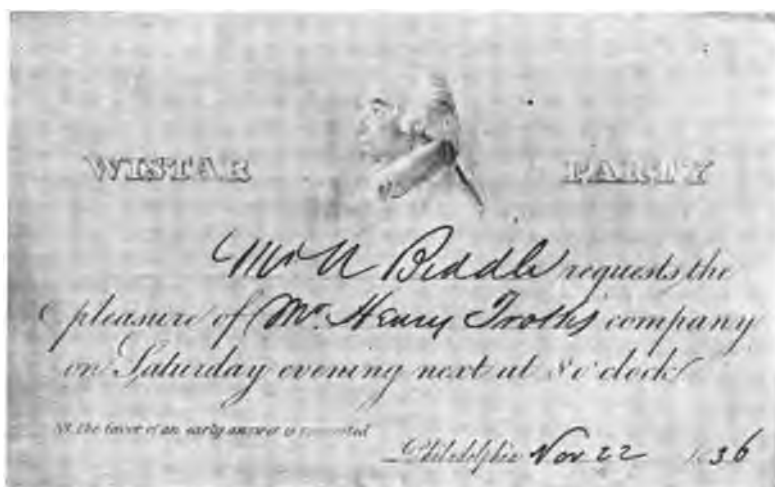 WISTAR PARTY
Mr N Biddle requests the
pleasure of Mr. Henry Troth's company
on Saturday evening next at 8 o'clock
the favor of an early answer is requested
Philadelphia Nov 22 1836